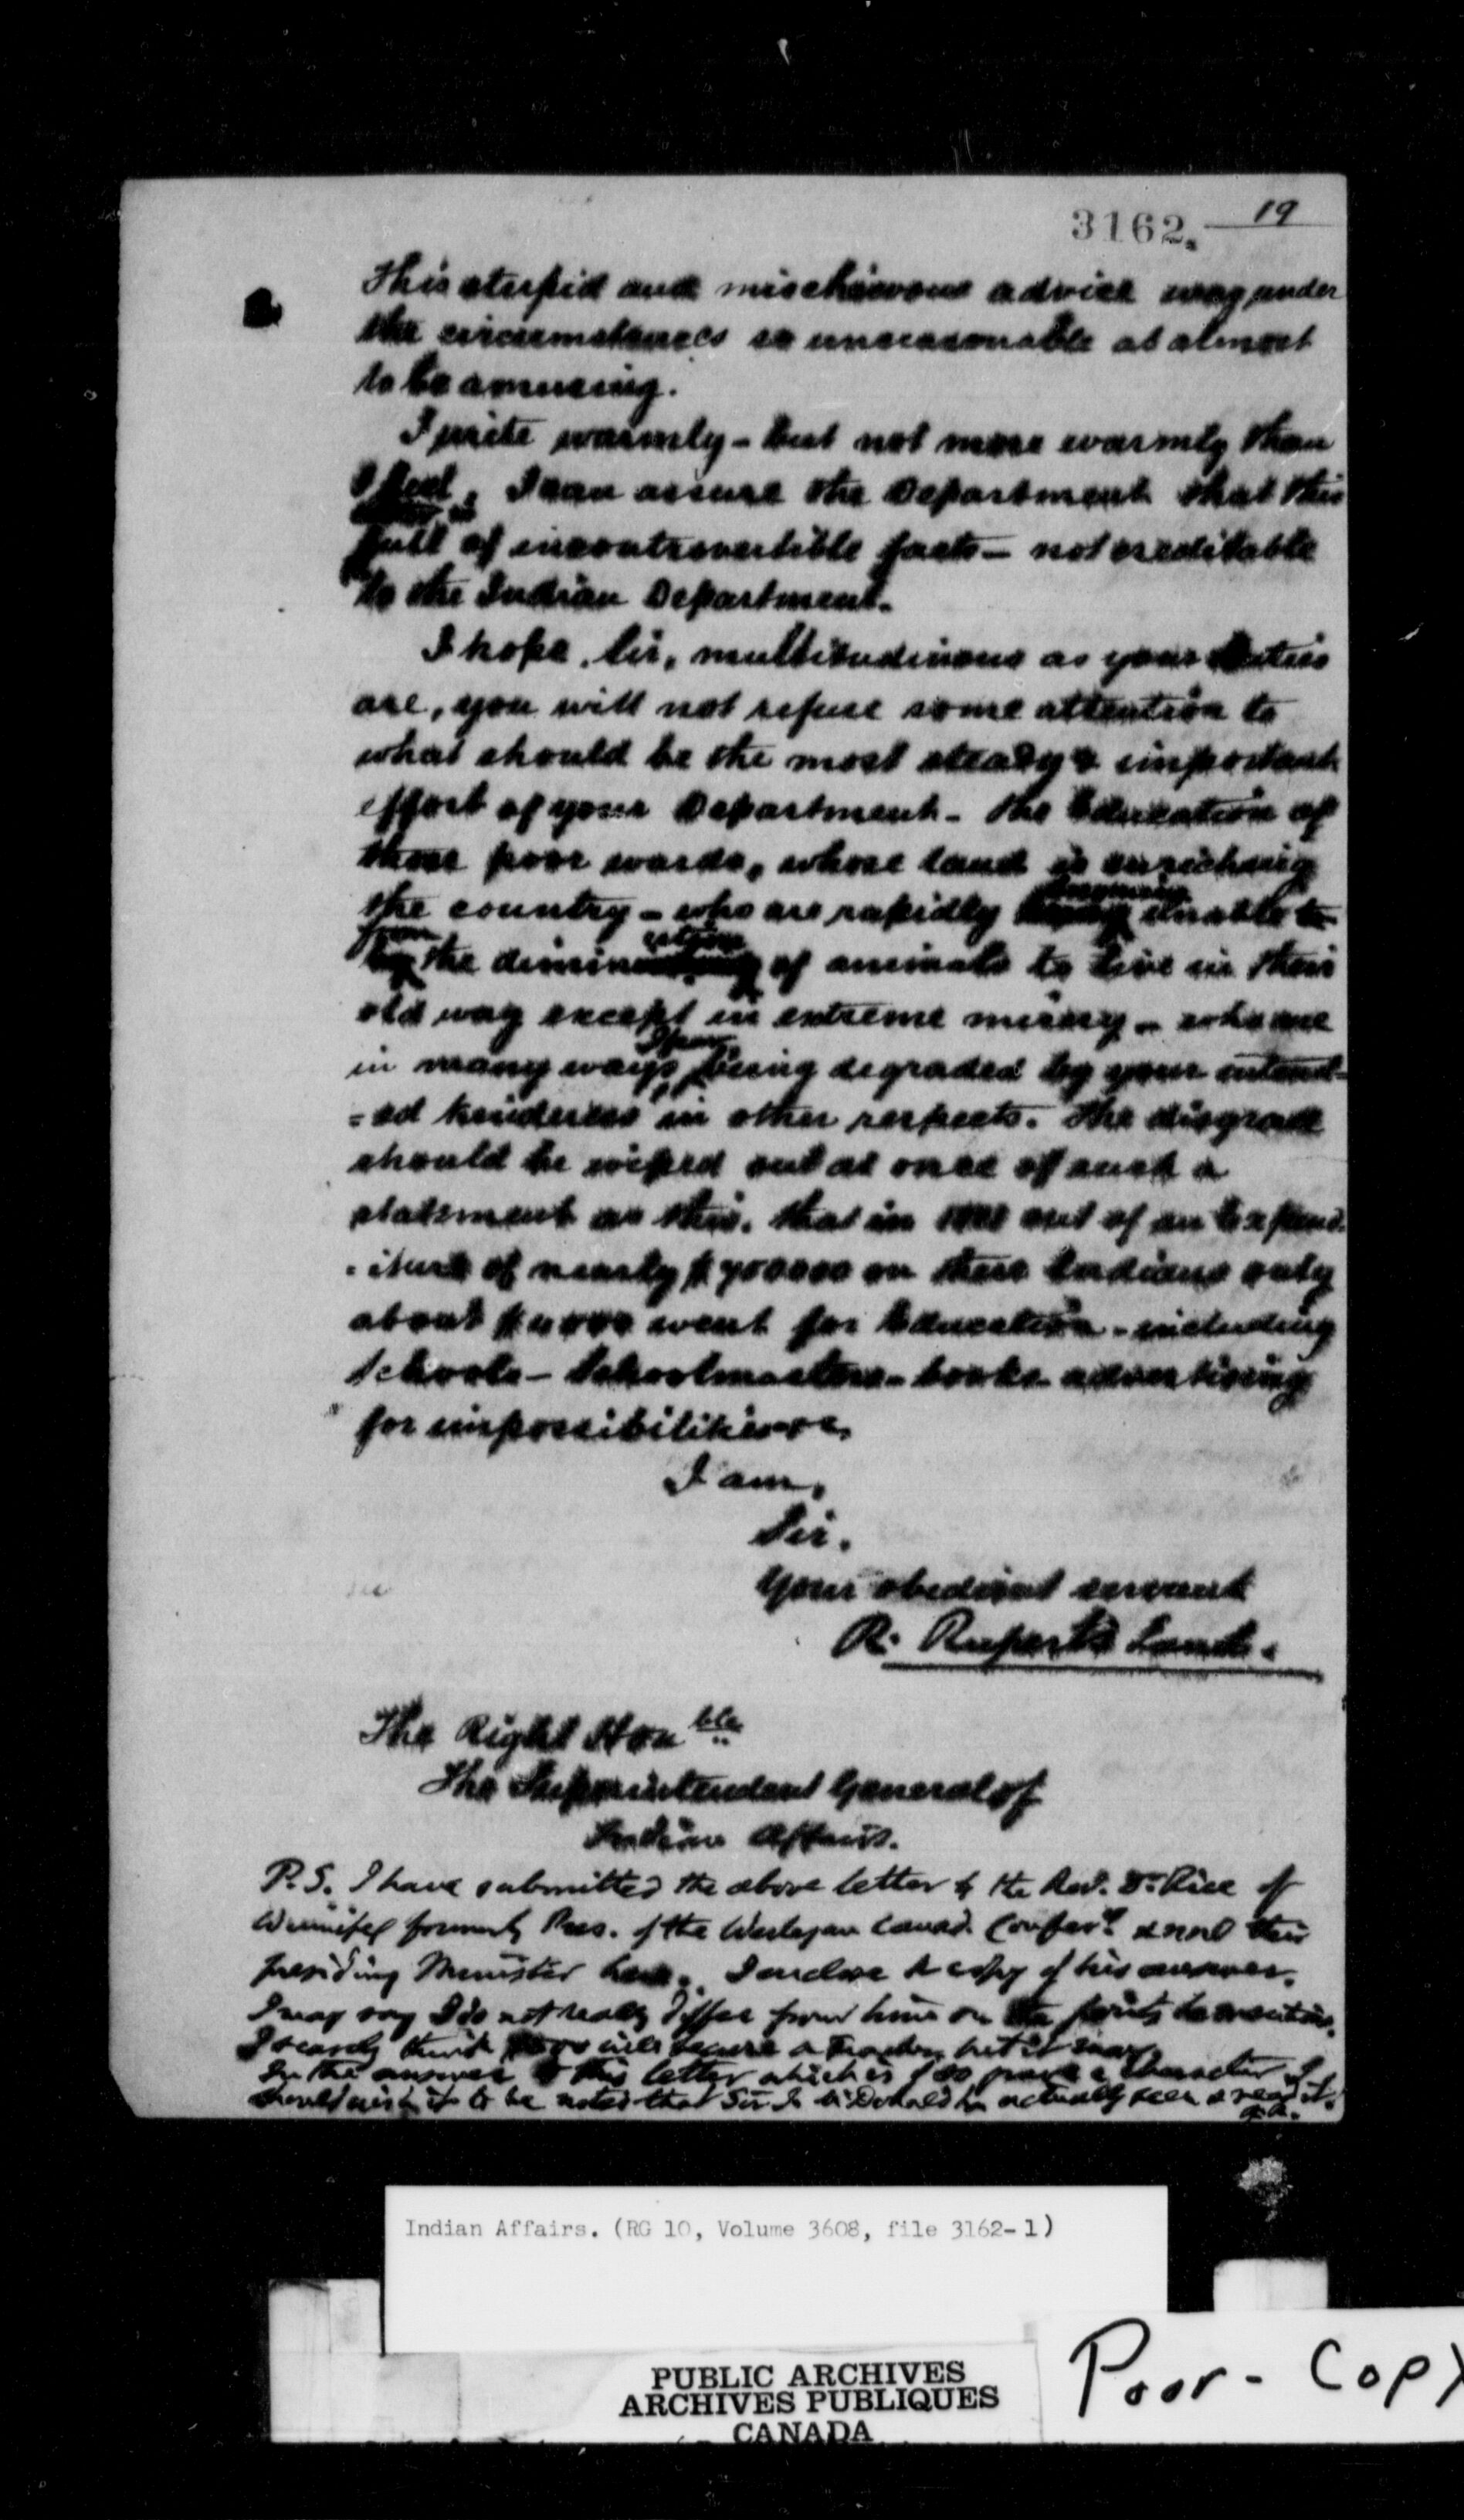 3162. 19
This stupid and mischievous advice was under
the circumstances so unreasonable as almost
to be amusing.
I write warmly - but not more warmly than
I feel. I can assure the Department that this
full of incontrovertible facts - not creditable
to the Indian Department.
I hope, Sir, multitudinous as your duties
are, you will not refuse some attention to
what should be the most steady & important
effort of your Department - the Education of
these poor wards, whose land is enriching
the country - who are rapidly becoming unable
from the diminution of animals to live in their
old way except in extreme misery - who are
in many ways I fear being degraded by your intend-
=ed kindness in other respects. The disgrace
should be wiped out at once of such a
statement as this. that in out of an Expend-
-iture of nearly $ on these Indians only
about $ went for Education - including
Schools - Schoolmasters - books - advertising
for impossibilities &c.
I am,
Sir.
Your obedient servant
R. Ruperts Land.
The Right Honble
The Superintendent General of
Indian Affairs.
P.S. I have submitted the above letter to the Rev. Dr. Rice of
Winnipeg formerly Pres. of the Wesleyan Canad. & now their
presiding Minister here. I enclose a copy of his answer.
I may say I do not really differ from him on the points he mentions.
I scarcely think will secure a Teacher but it may.
In the answer to this letter which is of so a character I
should wish it to be noted that Sir J. McDonald has actually seen & read it.
Indian Affairs. (RG 10, Volume 3608, file 3162-1)
PUBLIC ARCHIVES
ARCHIVES PUBLIQUES
CANADA
Poor - Copy